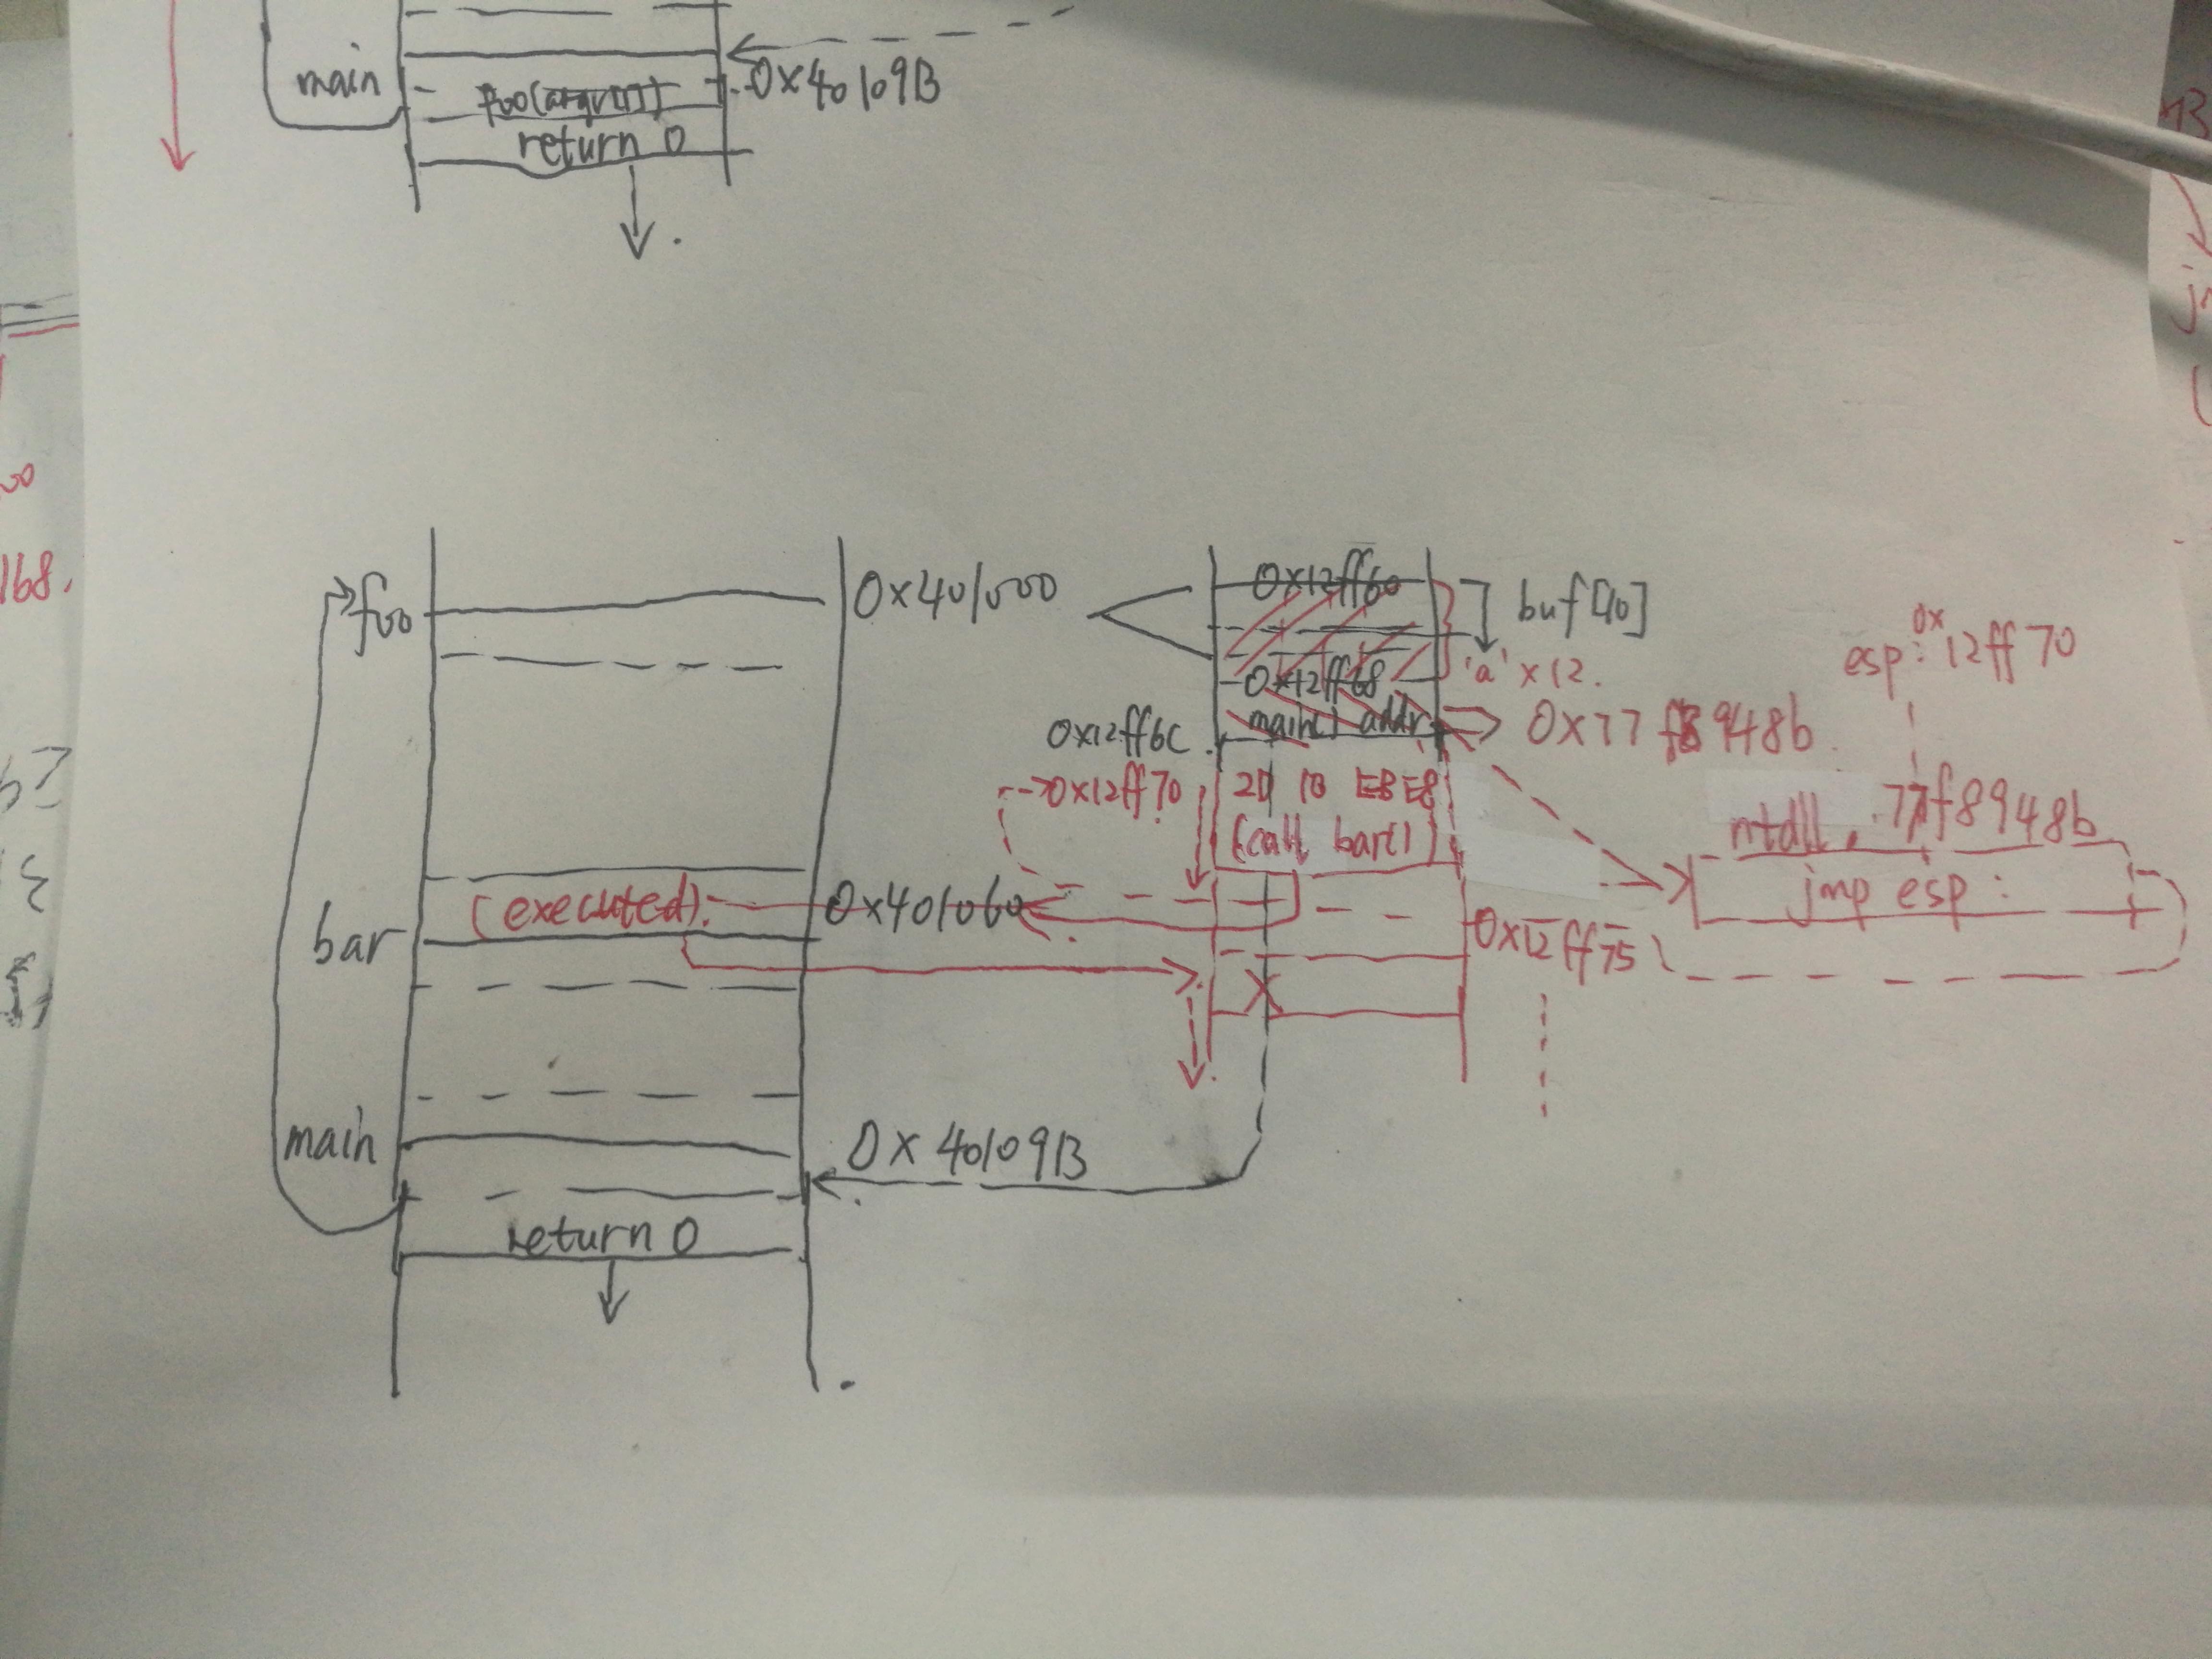 main
foo(argv[1])
0x40109B
return 0
foo
0x401000
0x12ff60
buf[10]
'a' x 12.
0x12ff68
esp: 0x12ff70
main() addr
0x12ff6C
0x77f8948b
0x12ff70
(call bar())
ntdll. 77f8948b
jmp esp:
(executed).
0x401060
bar
0x12ff75
X
main
0x40109B
return 0
168.